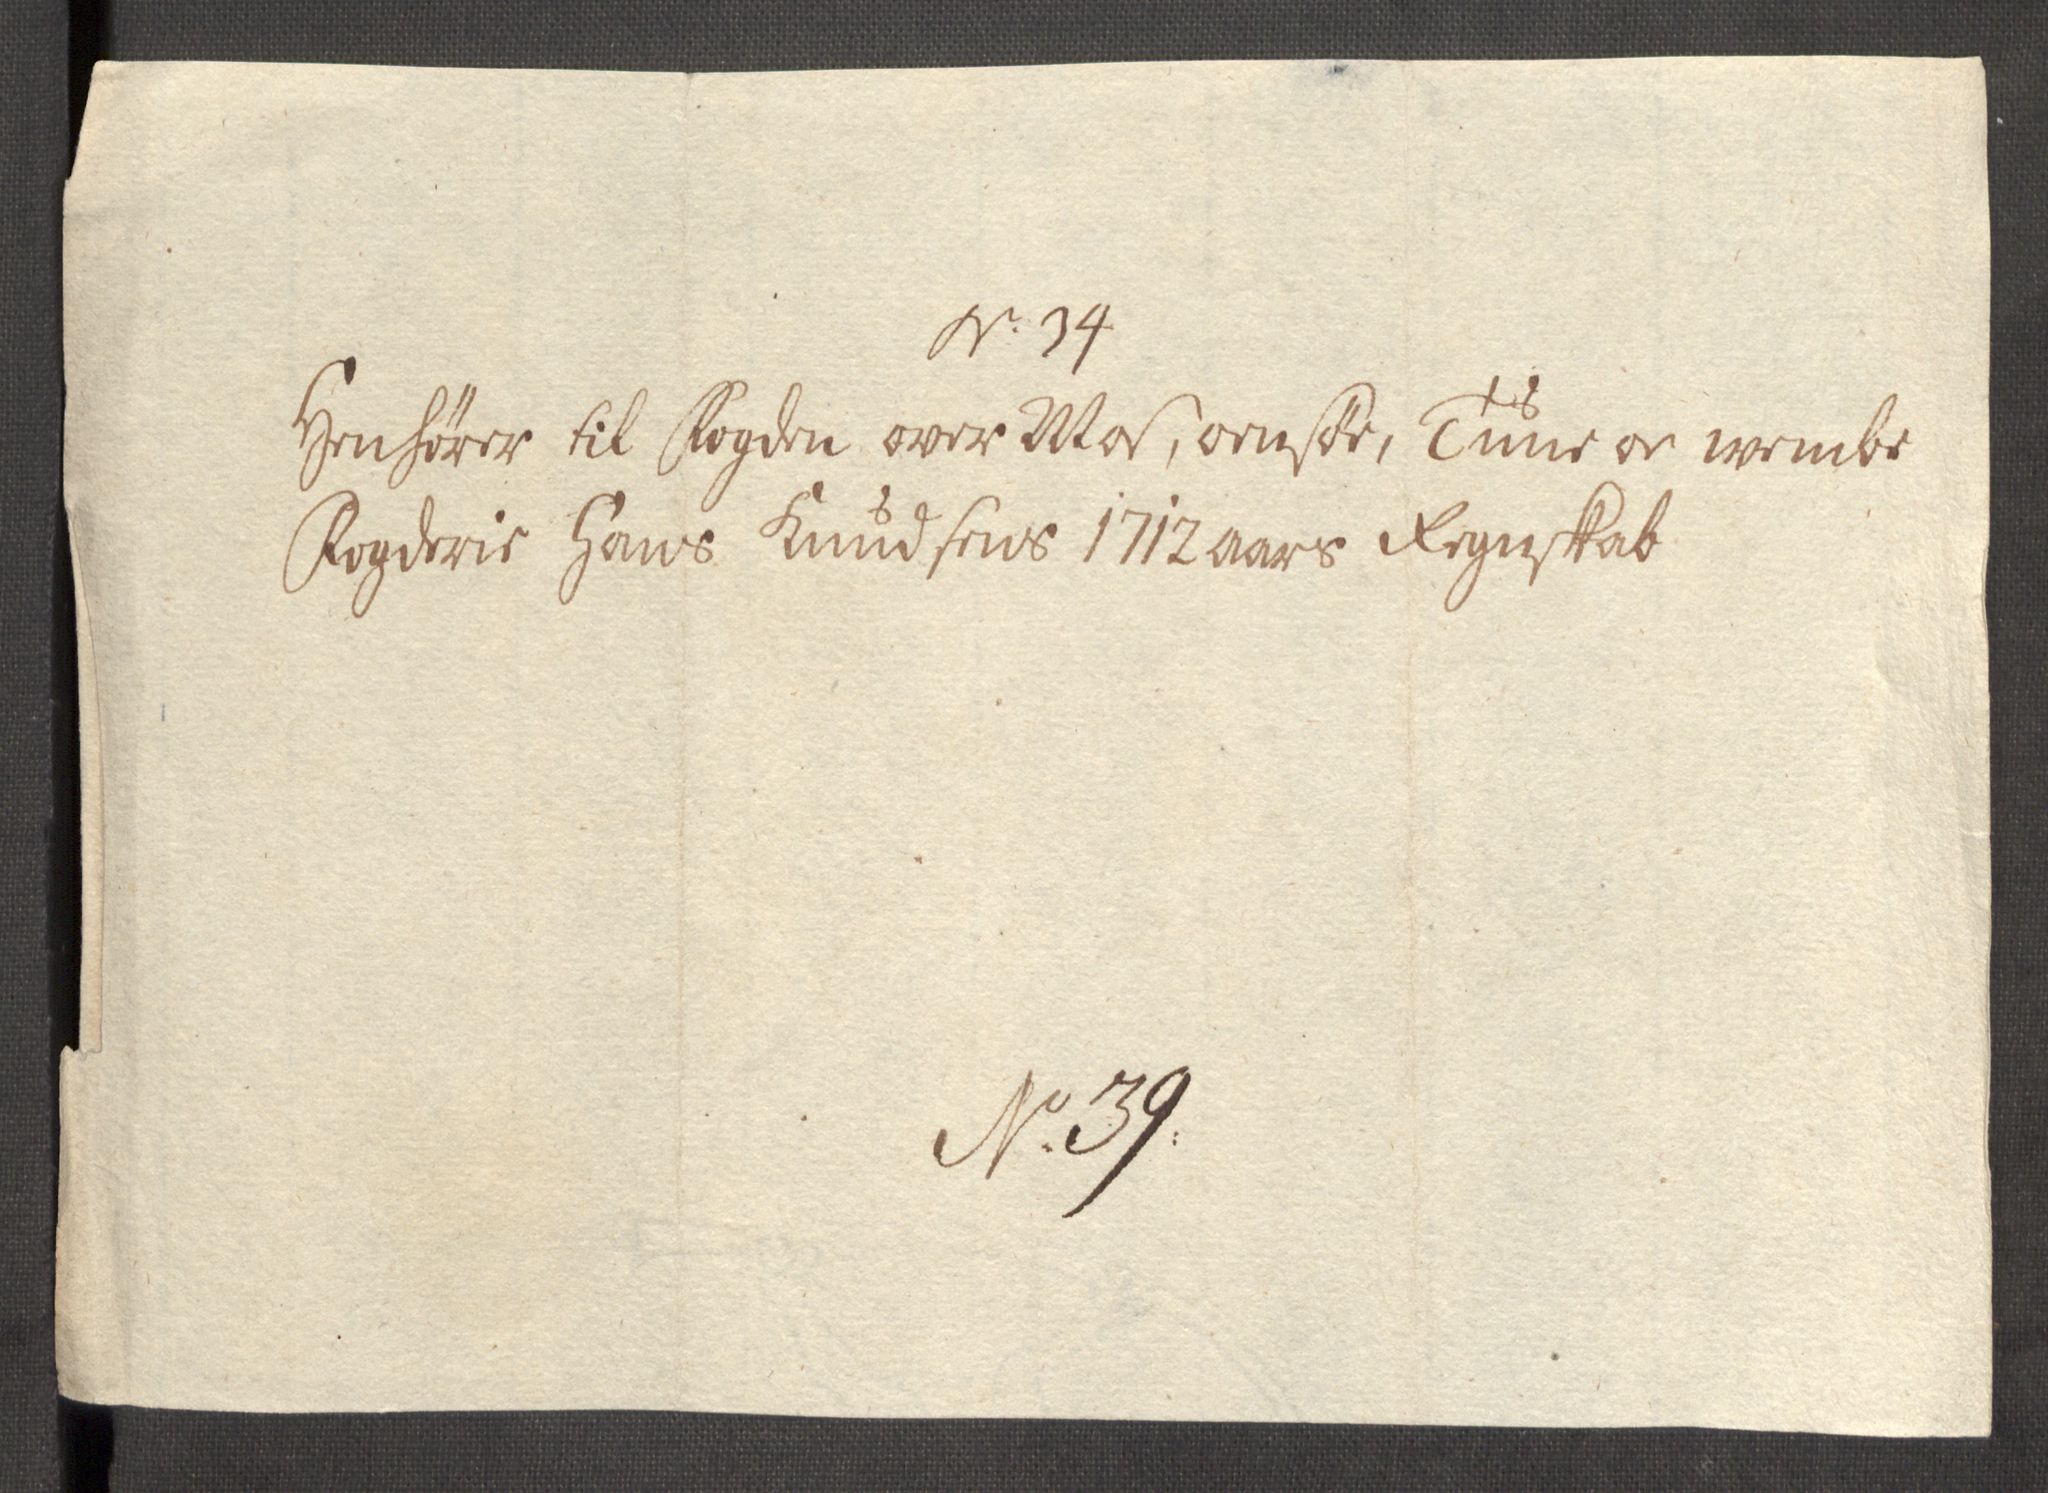 No. 34
Henhörer til Fogden over Mos, onsöe, Tune oc wembe
Fogderie Hans Knudsens 1712 aars Regnskab
No. 39: